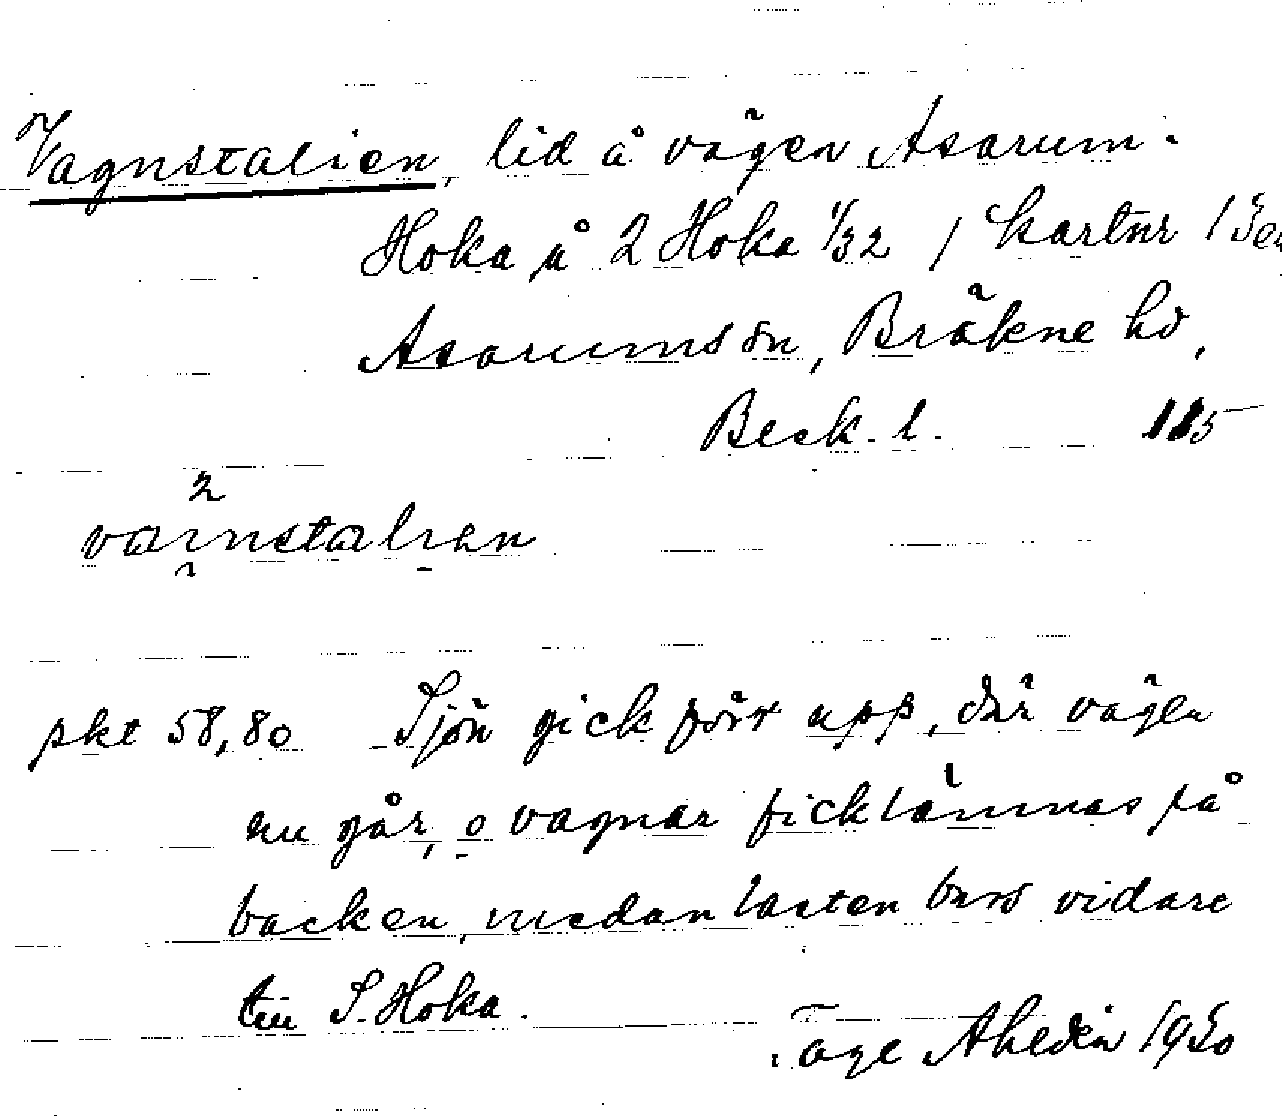 Vagnstalien, lid å vägen Asarum-
Hoka å 2 Hoka 1/32 / kartnr
Asarums sn, Bräkne hd,
Bleck. l. 115
pkt 58,80 Sjön gick förr upp, där vägen
nu går, o vagnar fick lämnas på
backen, medan lasten bars vidare
till S. Hoka.
Tage Ahldén 1950